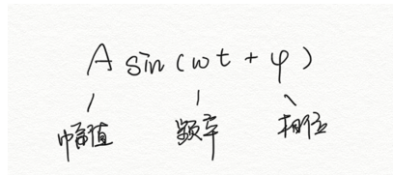 A sin(ωt + φ)
幅值 频率 相位